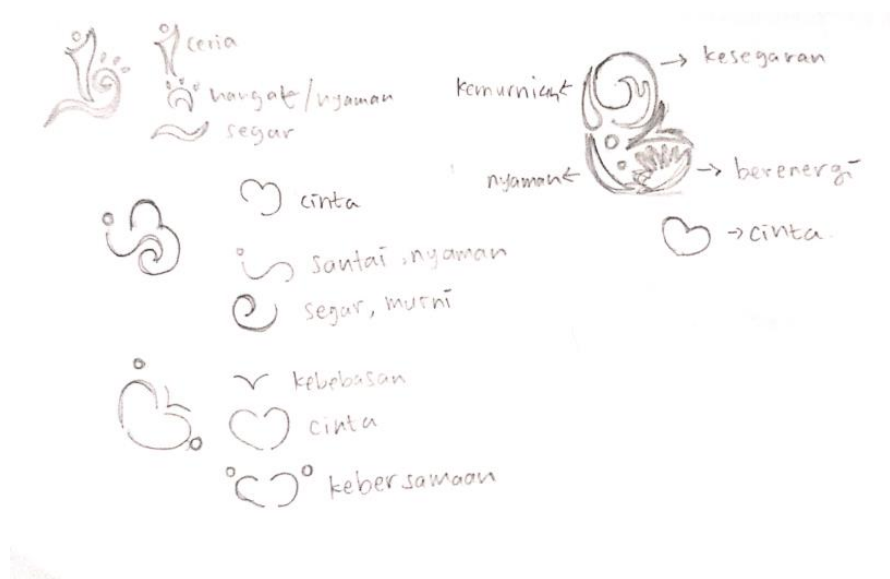 ceria
hangat/nyaman
segar
cinta
santai, nyaman
segar, murni
kebebasan
cinta
kebersamaan
kesegaran
kemurnian
nyaman
berenergi
cinta.